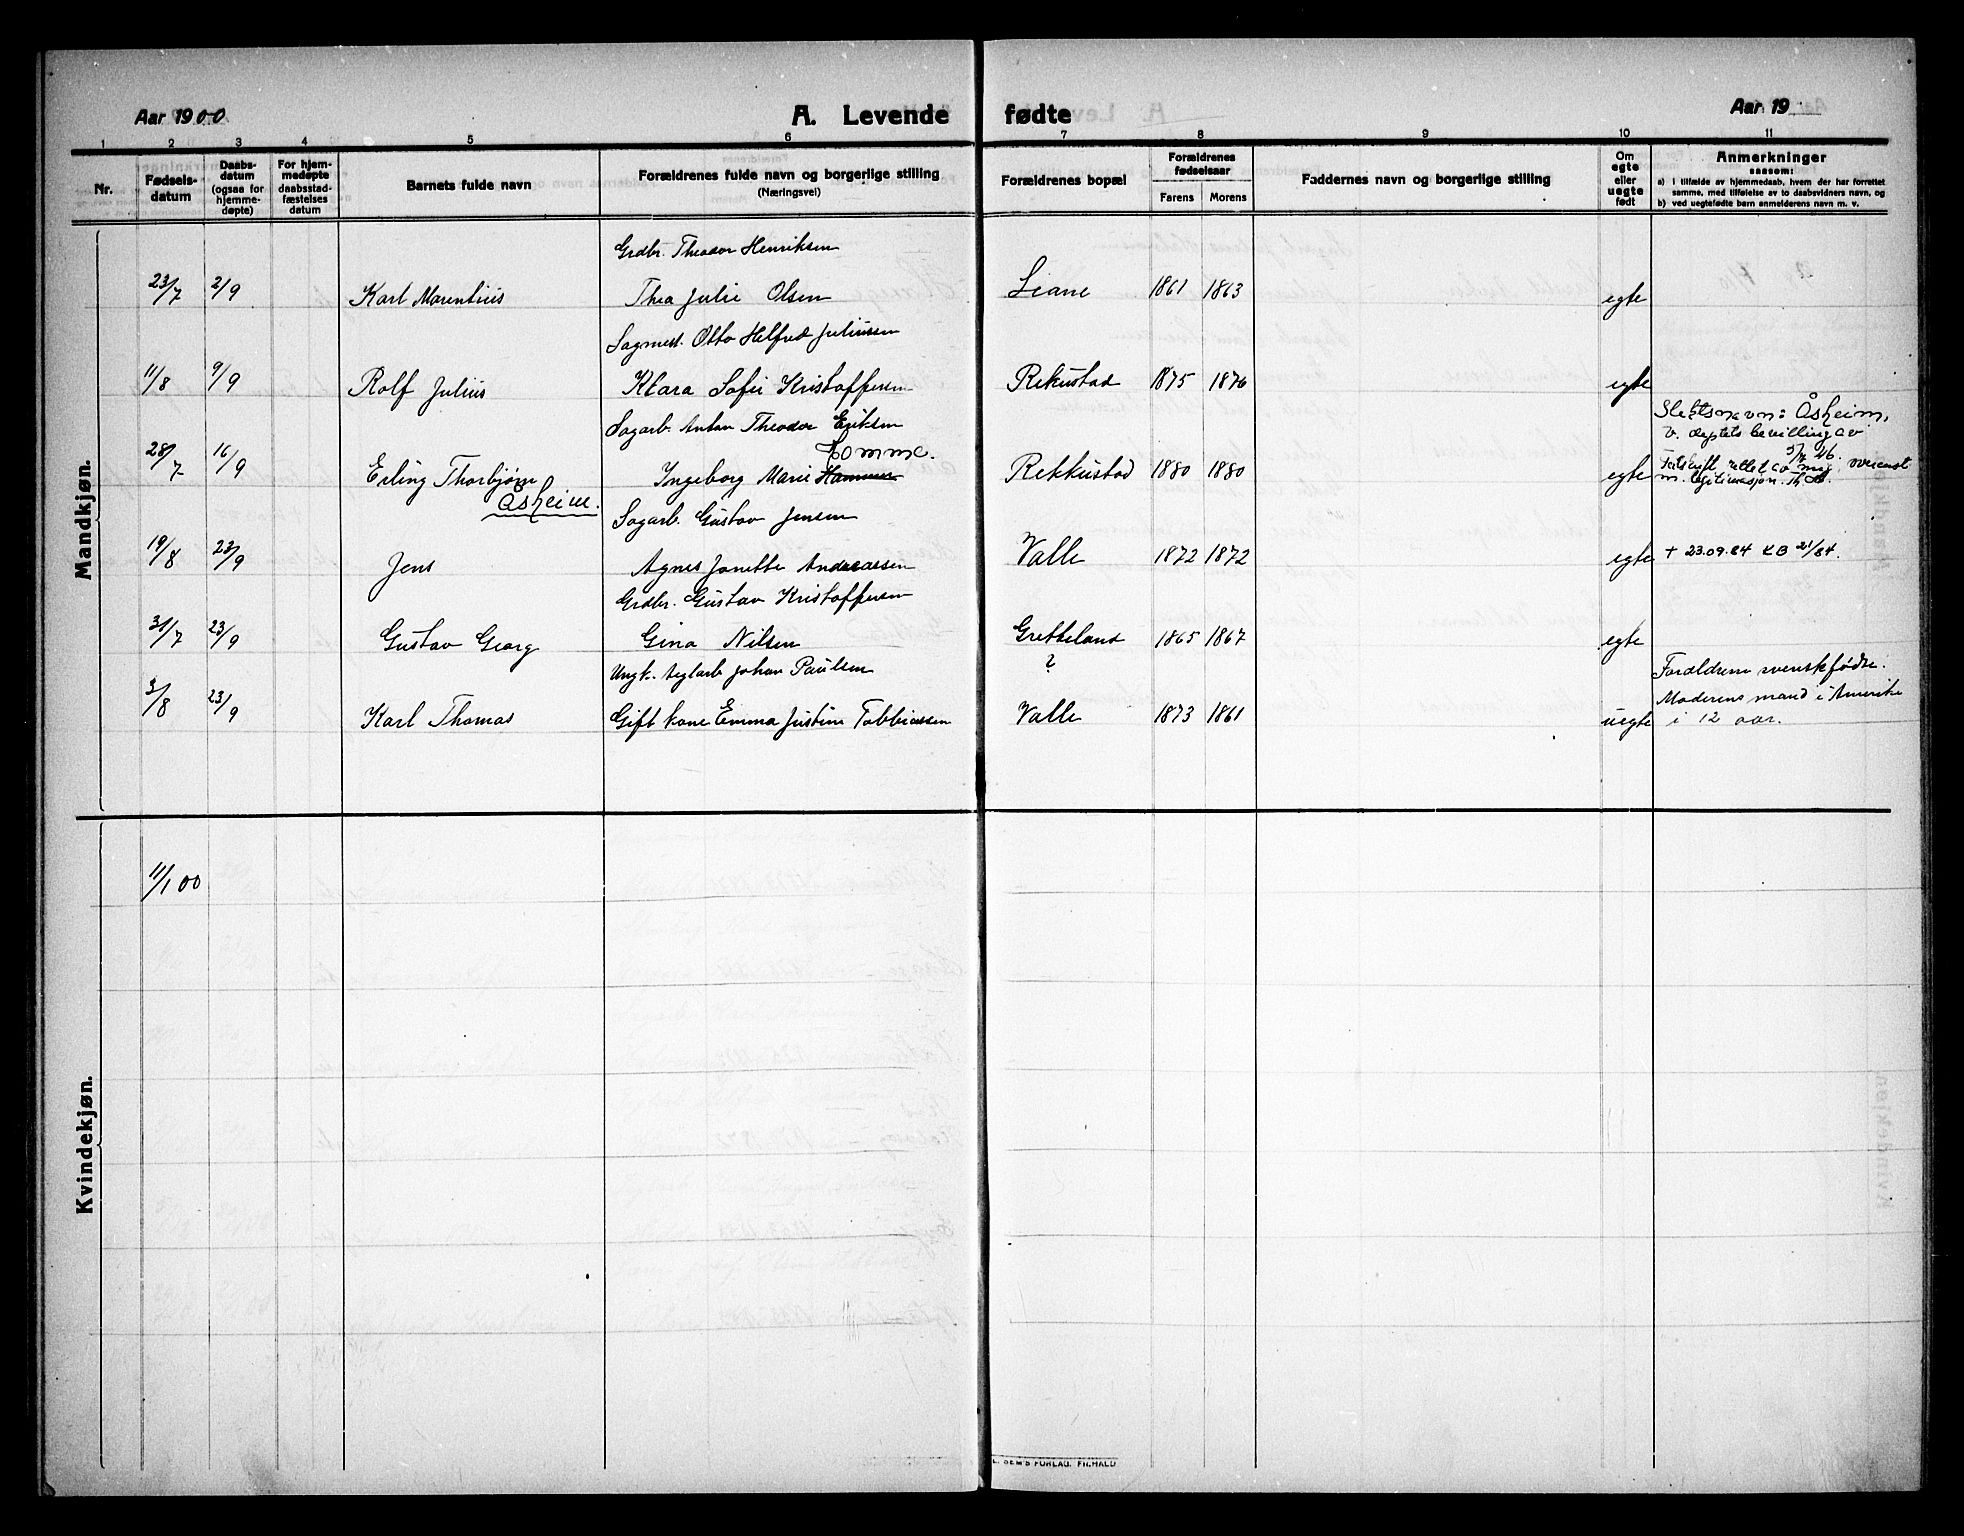 Aar 1900
A. Levende fødte
Aar 19
1 2 3 4 5 6 7 8 9 10 11
Nr.
Fødsels-
datum
Daabs-
datum
(ogsaa for
hjemme-
døpte)
For hjem-
medøpte
daabsstad-
fæstelses
datum
Barnets fulde navn
Forældrenes fulde navn og borgerlige stilling
(Næringsvei)
Forældrenes bopæl
Forældrenes
fødselsaar
Farens Morens
Faddernes navn og borgerlige stilling
Om
egte
eller
uegte
født
Anmerkninger
saasom:
a) i tilfælde av hjemmedaab, hvem der har forrettet
samme, med tilføielse av to daabsvidners navn, og
b) ved uegtefødte barn anmelderens navn m. v.
Mandkjøn.
Grdbr. Theodor Henriksen
23/7 2/9 Karl Marentius Thea Julie Olsen Liane 1861 1863 egte
Sagmest. Otto Helfred Juliussen
11/8 9/9 Rolf Julius Klara Sofie Kristoffersen Rekustad 1875 1876 egte
Slektsnavn: Åsheim,
Sagarb. Anton Theodor Eriksen
v. deptets bevilling av
Tomme.
3/7 46.
28/7 16/9 Erling Thorbjørn Ingeborg Marie Hammer Rekkustad 1880 1880 egte
rettet av meg, overenst
Åsheim.
m. legitimasjon.
Sagarb. Gustav Jensen
19/8 23/9 Jens Agnes Janette Andreassen Valle 1872 1872 egte + 23.09.84 KB 21/84.
Grdbr. Gustav Kristoffersen
31/7 23/9 Gustav Georg Gina Nilsen Gretteland 1865 1867 egte
Ungk. teglarb Johan Paulsen ? Forældrene svenskfødte.
Moderens mand i Amerika
3/8 23/9 Karl Thomas Gift kone Emma Justine Tobbiassen Valle 1873 1861 uegte i 12 aar.
Kvindekjøn.
11/1 00
SEM'S FORLAG, FR.HALD